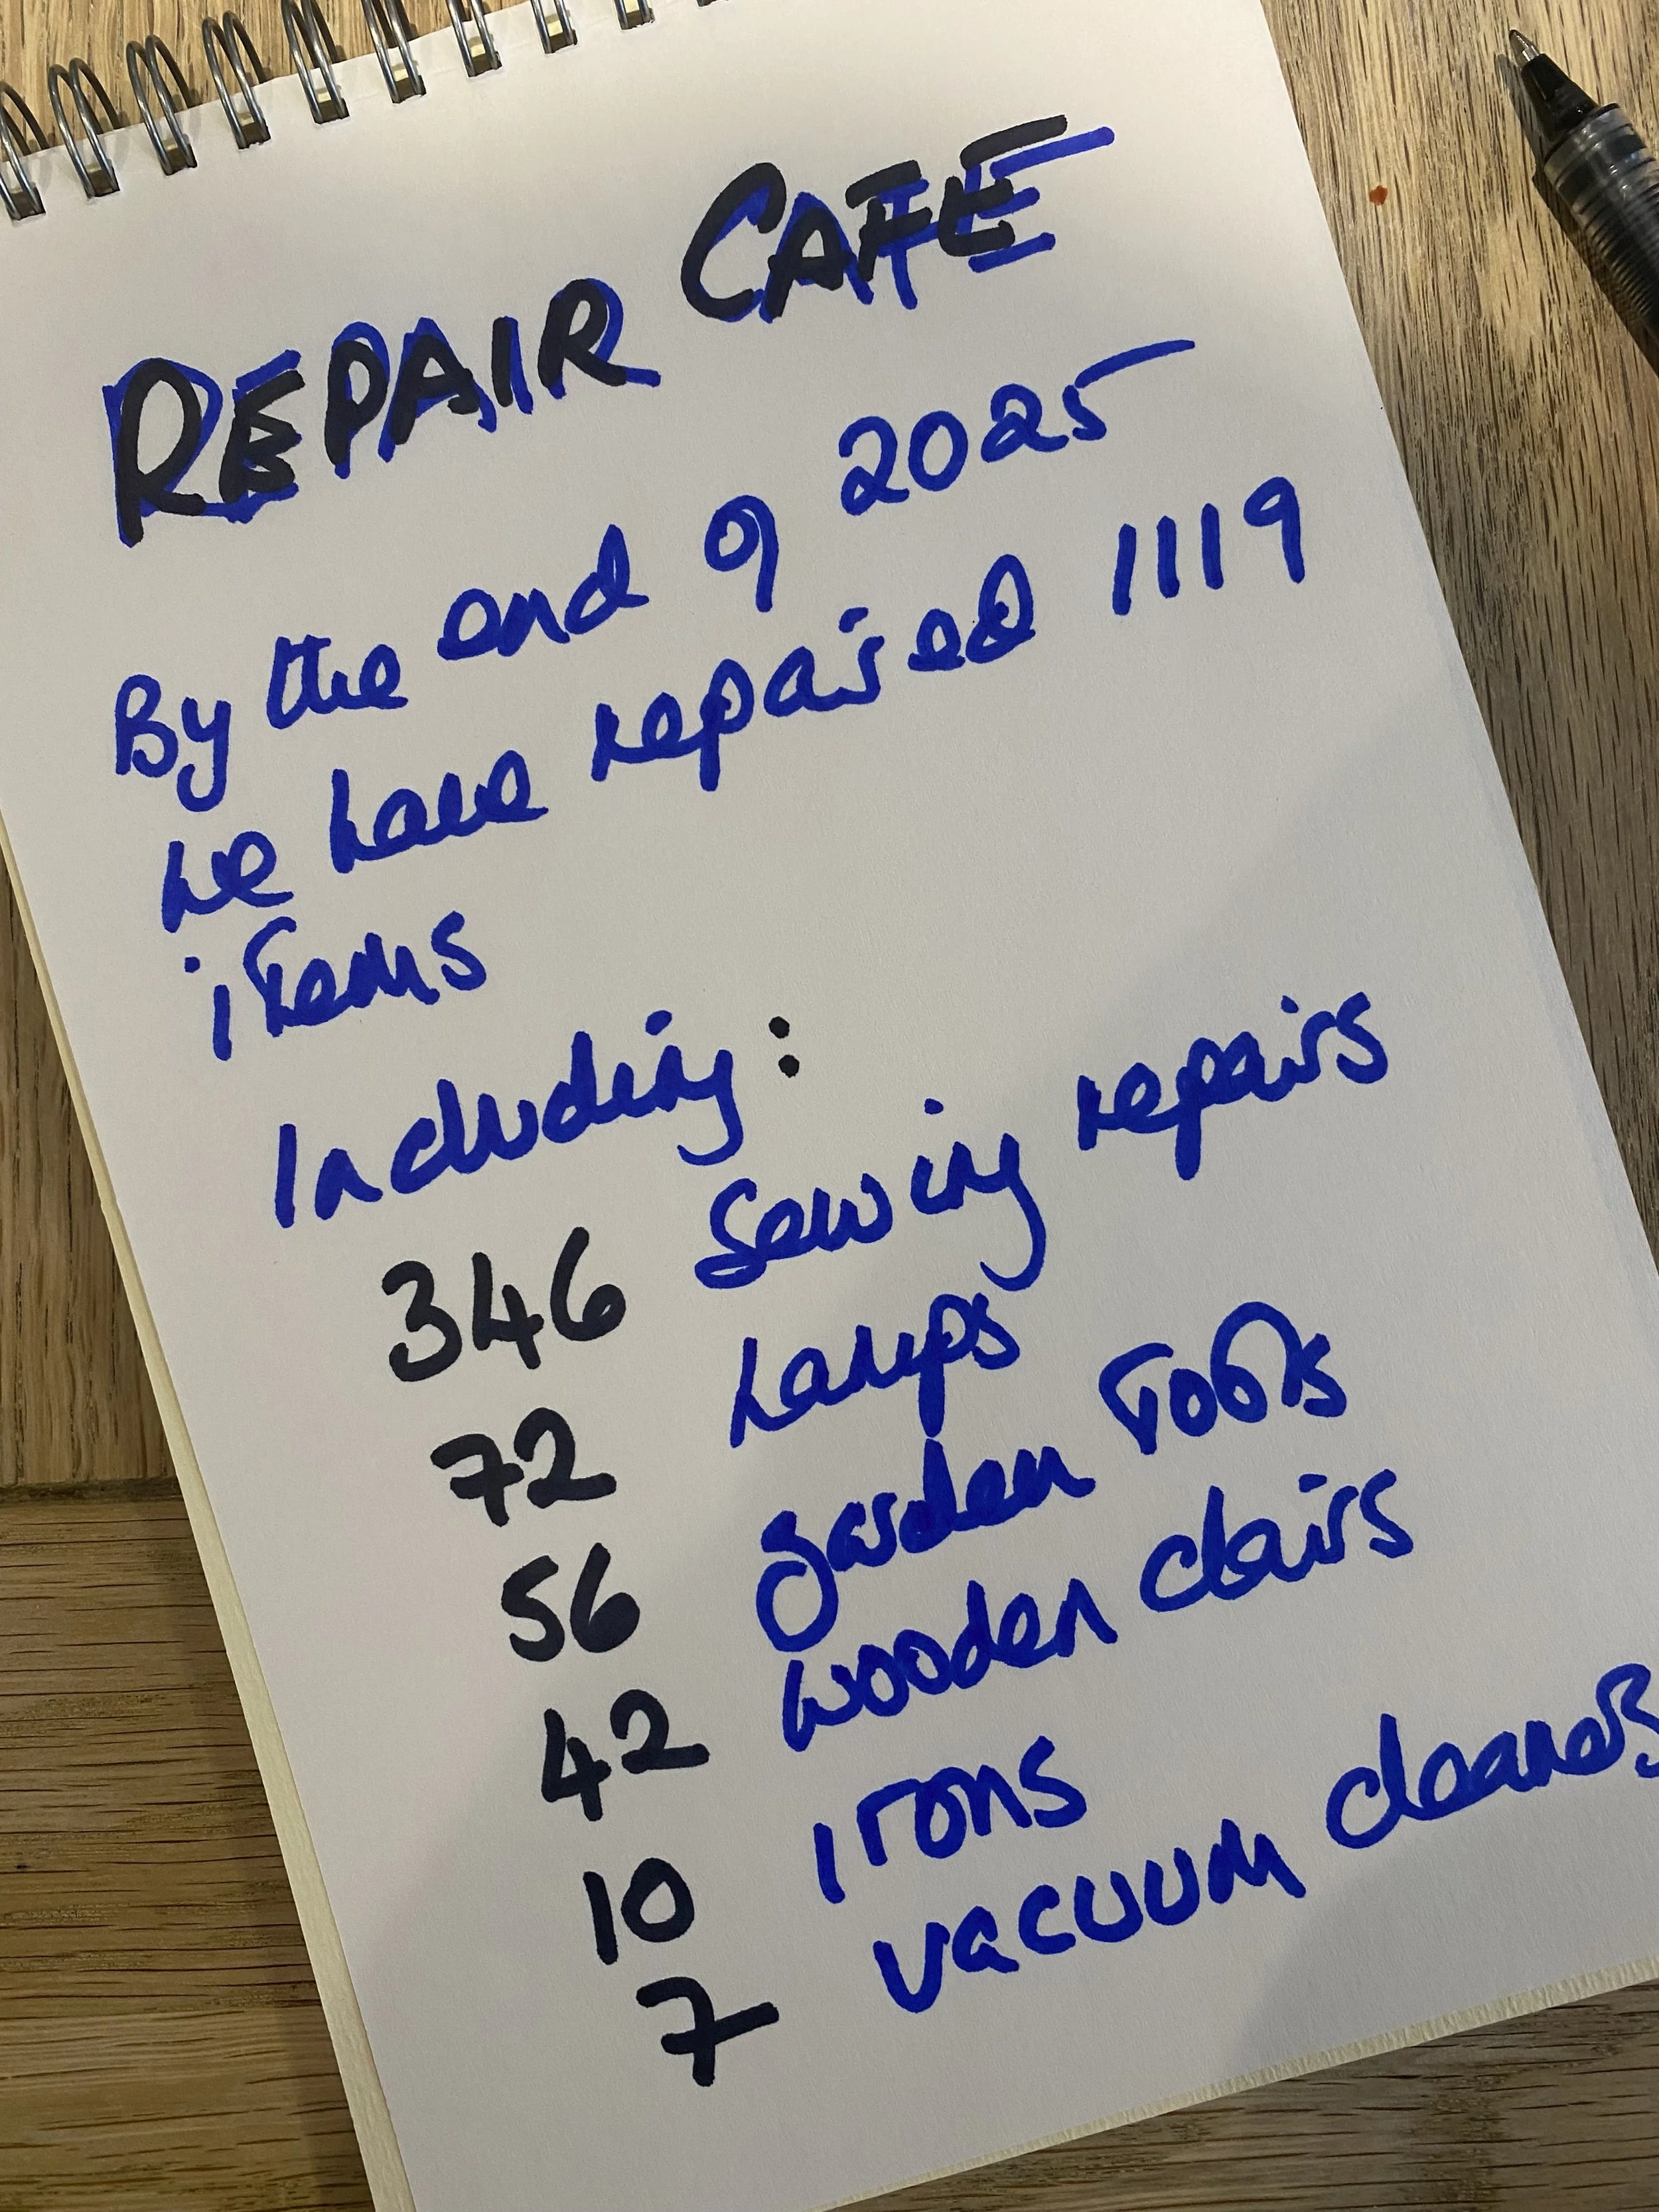 REPAIR CAFE
By the end of 2025
we have repaired 1119
items
Including:
346 Sewing repairs
72 Lamps
56 garden Tools
42 wooden chairs
10 irons
7 vacuum cleaners